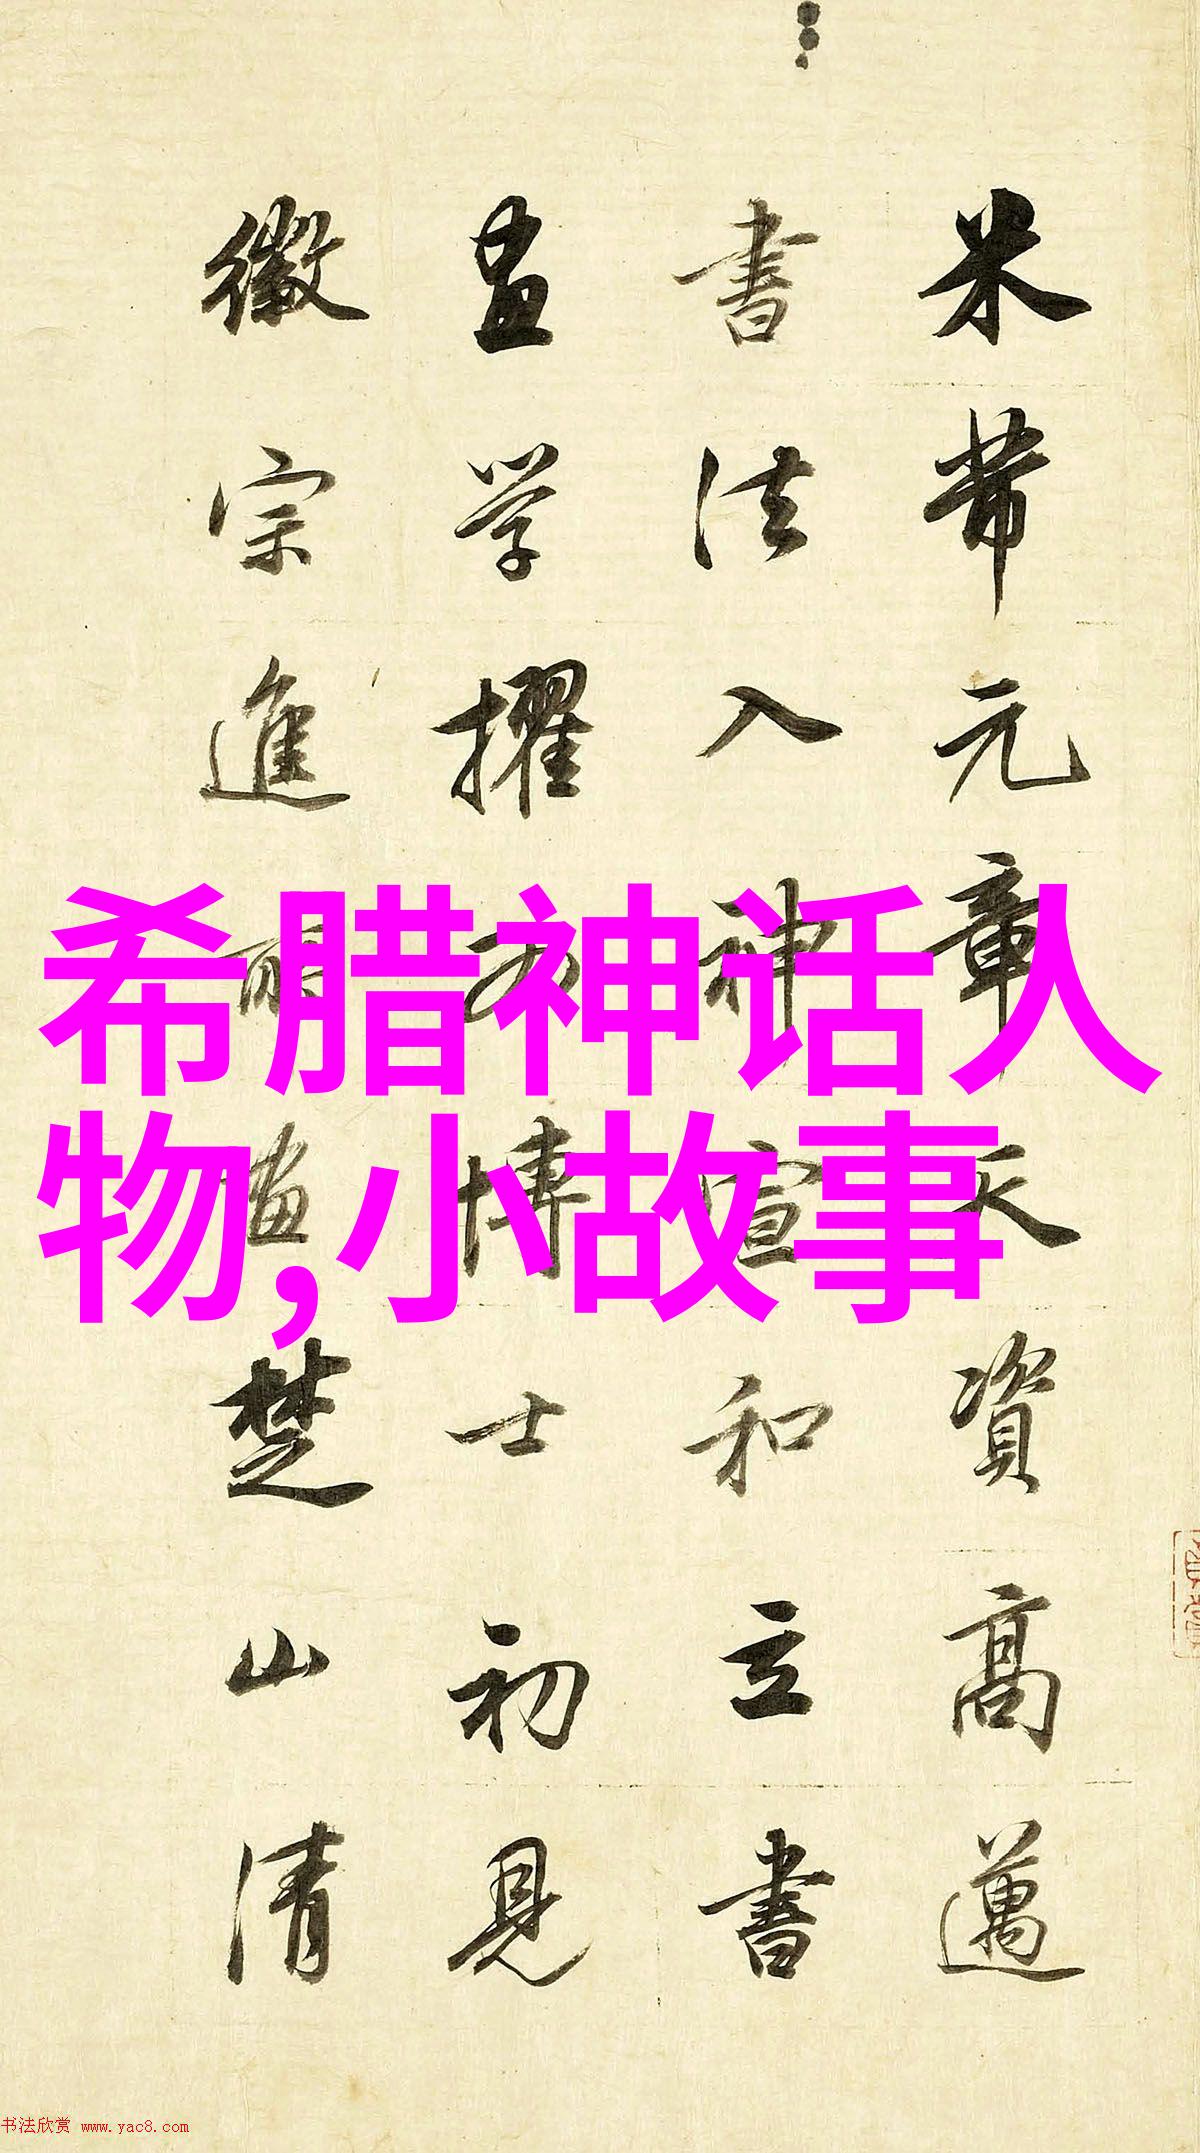 米芾元章天資高邁
書法入神宣和立書
畫学擢为博士初見
徽宗進所畫楚山清
希腊神话人
物,小故事
书法欣赏 www.yac8.com